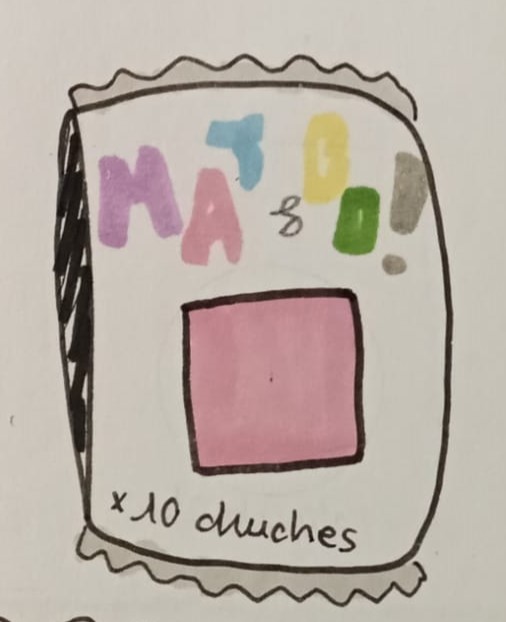 MAT & DO!
x10 chuches